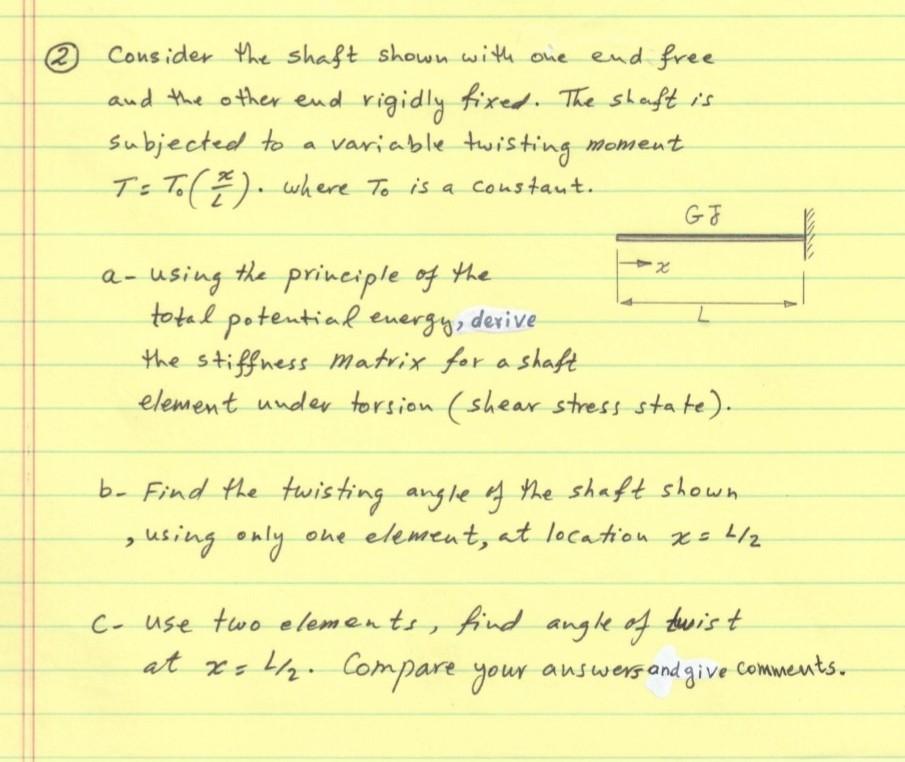 ② Consider the shaft shown with one end free
and the other end rigidly fixed. The shaft is
subjected to a variable twisting moment
T = T₀(x/L). where T₀ is a constant.
GJ
x
L
a- using the principle of the
total potential energy, derive
the stiffness matrix for a shaft
element under torsion (shear stress state).
b- Find the twisting angle of the shaft shown
, using only one element, at location x = L/2
c- use two elements, find angle of twist
at x = L/2. Compare your answers and give comments.